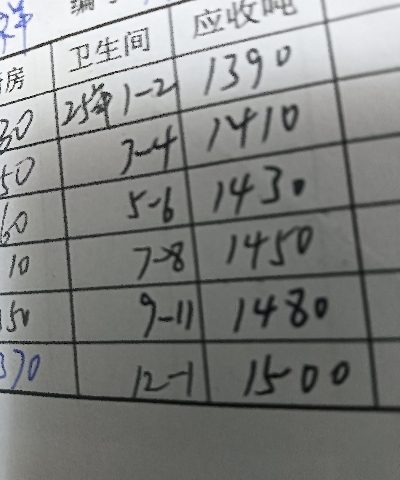 编号
房 卫生间 应收吨
30 25年 1-2 1390
50 3-4 1410
60 5-6 1430
10 7-8 1450
150 9-11 1480
370 12-1 1500